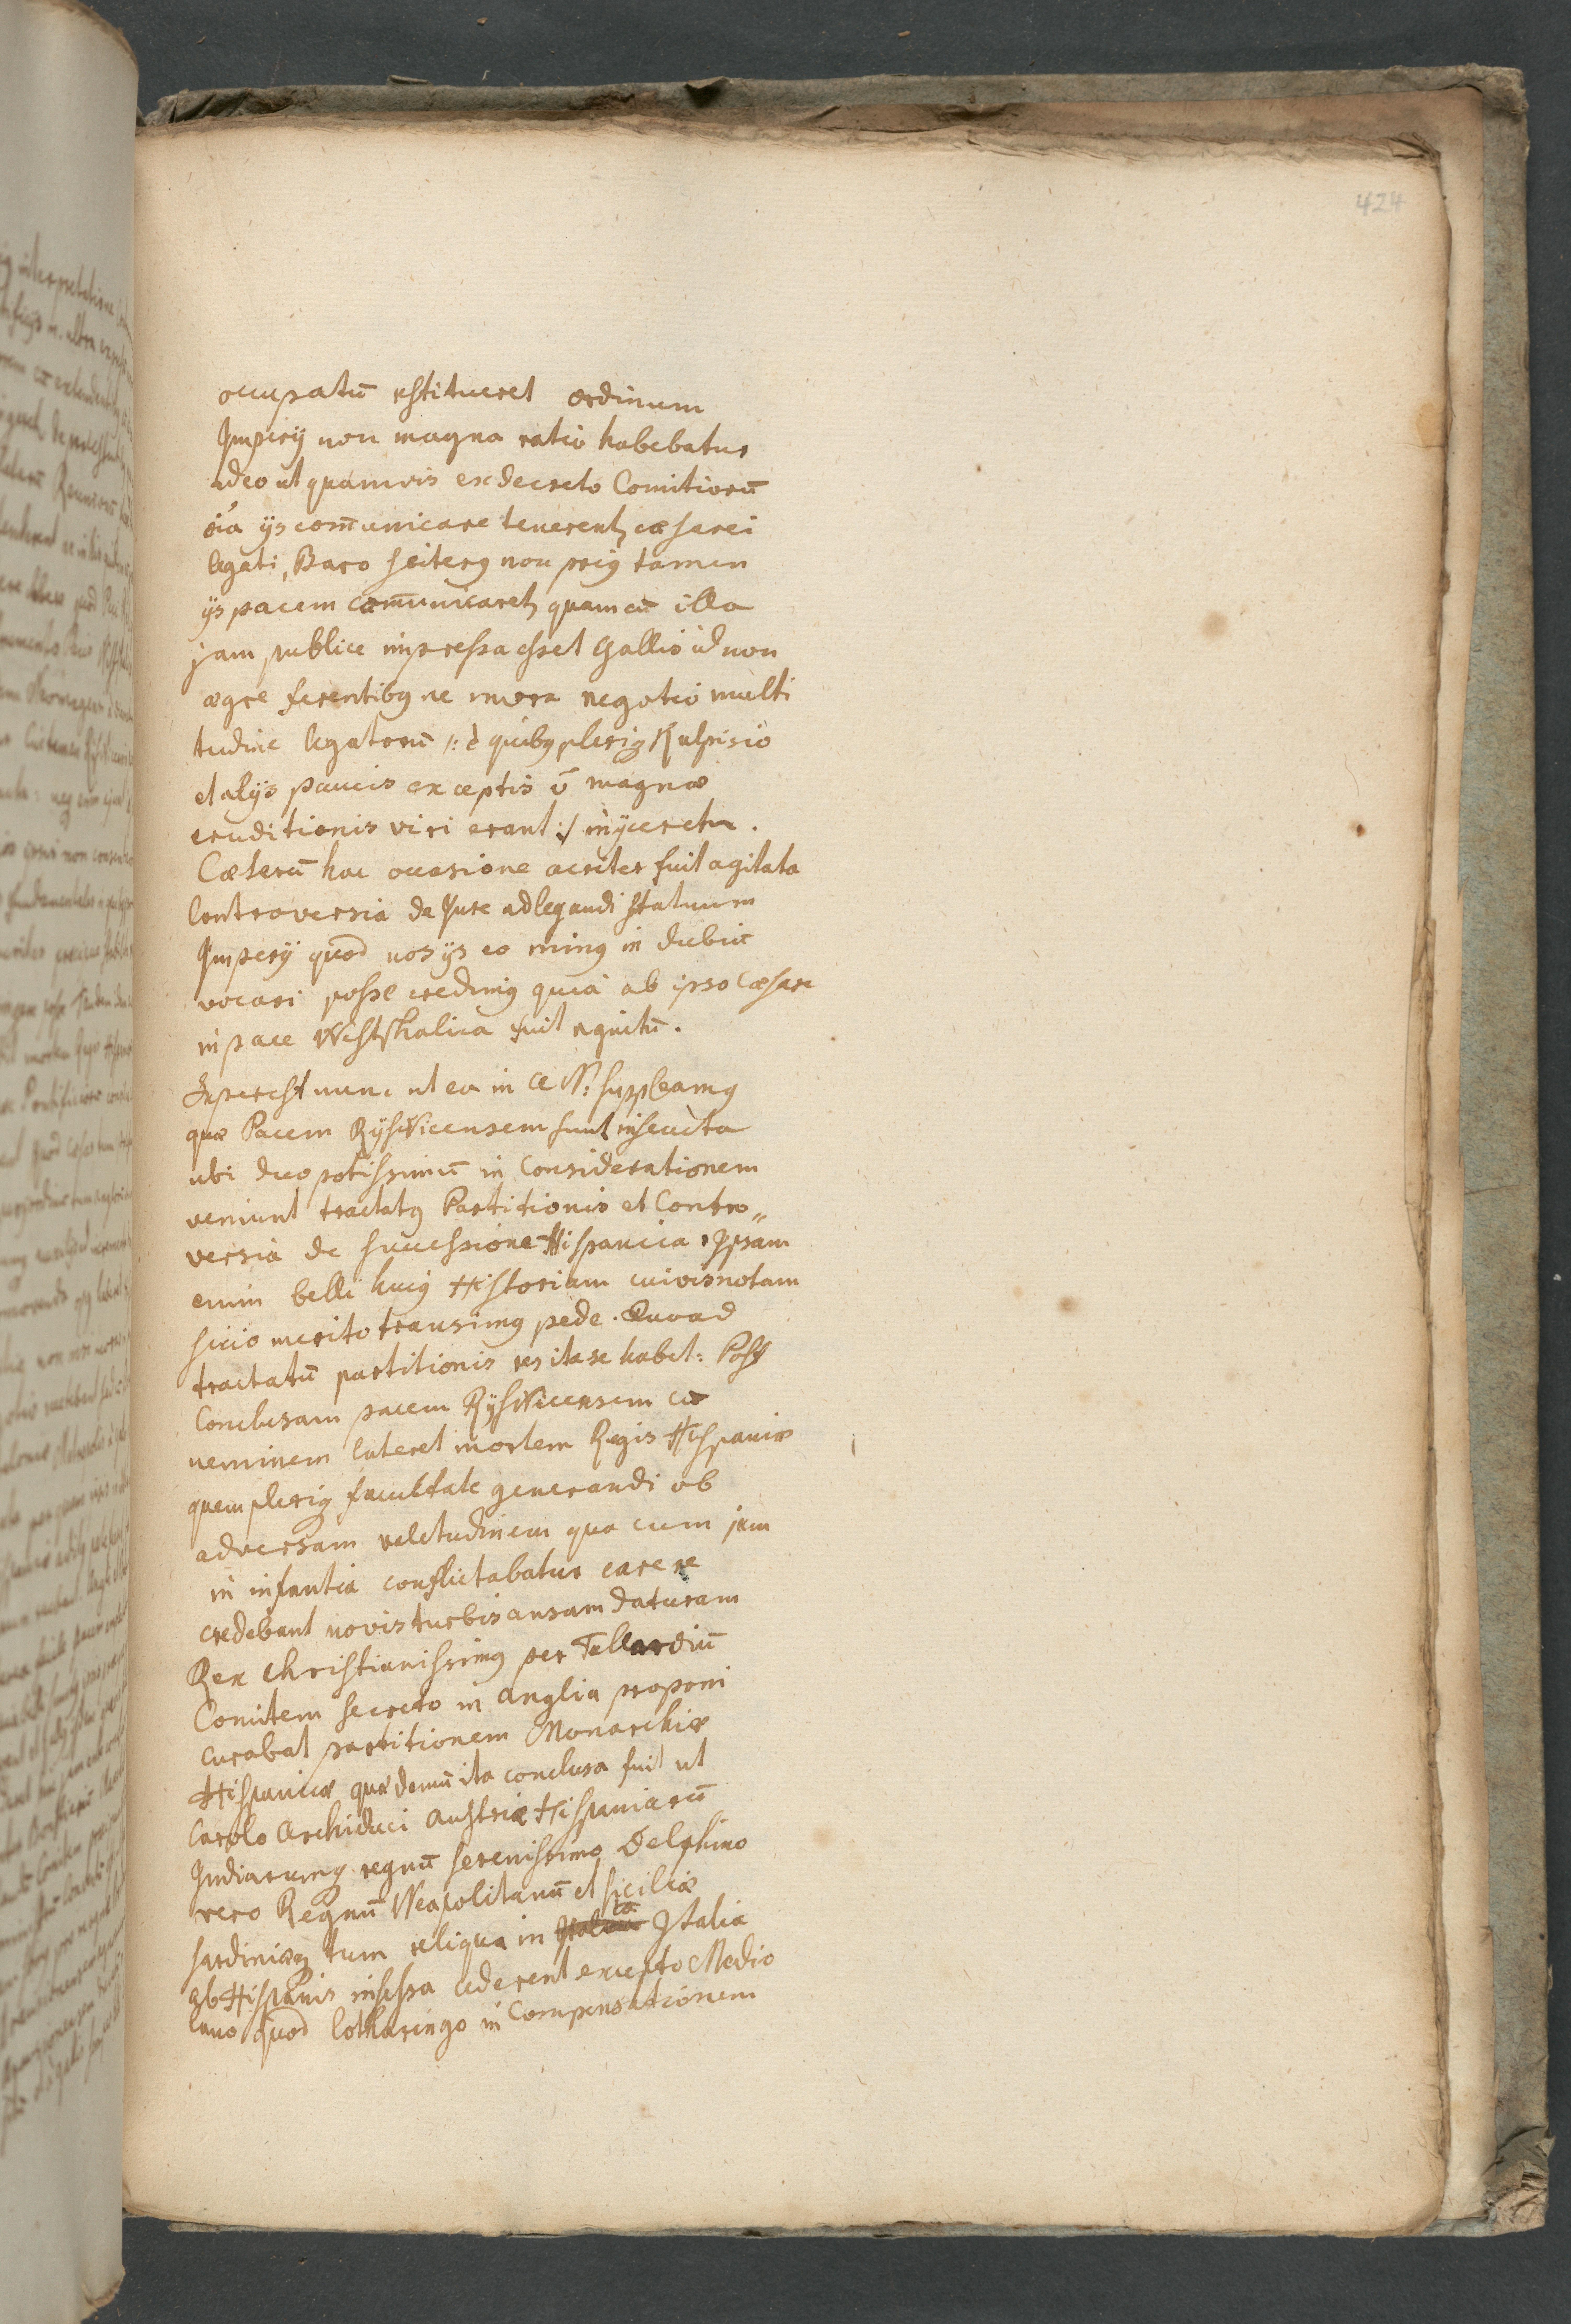 424
occupatū restitueret ordinum
Imperij non magna ratio habebatur
adeo ut quamvis ex decreto Comitiorū
oīa ijs com̄unicare tenerentꝫ cæsarei
legati, Baro seilerꝰ non priꝰ tamen
ijs pacem com̄unicaretꝫ quam cū illa
jam publice impressa esset gallis id non
ægre ferentibꝰ ne mora negotio multi
tudine legatorū /: è quibꝰ pleriqꝫ Kulpisio
et alijs paucis exceptis ō magnæ
eruditionis viri erant :/ injiceretur.
Cæterū hac occasione acriter fuit agitata
Controversia de Jure adlegandi statuum
Imperij quod nos ijs eo minꝰ in dubiū
vocari posse credimꝰ quia ab ipso Cæsare
in pace Westphalica fuit agnitū.
Superest nunc ut ea in A N: suppleamꝰ
quæ Pacem RijsWicensem sunt insecuta
ubi duo potissimū in Considerationem
veniunt tractatꝰ Partitionis et Contro„
versia de successione Hispanica. Ipsam
enim belli huiꝰ Historiam cuivis notam
sicco merito transimꝰ pede. Quoad
tractatū partitionis res ita se habet: Post
Conclusam pacem RijsWicensem cū
neminem lateret mortem Regis Hispaniæ
quem pleriqꝫ facultate generandi ob
adversam valetudinem qua cum jam
in infantia conflictabatur carere
credebant novis turbis ansam daturam
Rex Christianissimꝰ per Tallardiū
Comitem secreto in Anglia proponi
curabat partitionem Monarchiæ
Hispanicæ quæ demū ita conclusa fuit ut
Carolo Archiduci Austriæ Hispaniarū
Indiarumqꝫ regnū serenissimo Delphino
vero Regnū Neapolitanū et siciliæ
sardiniæqꝫ tum reliqua in Italia
ab Hispanis insessa cederent excepto Medio
lano quod lotharingo in Compensationem